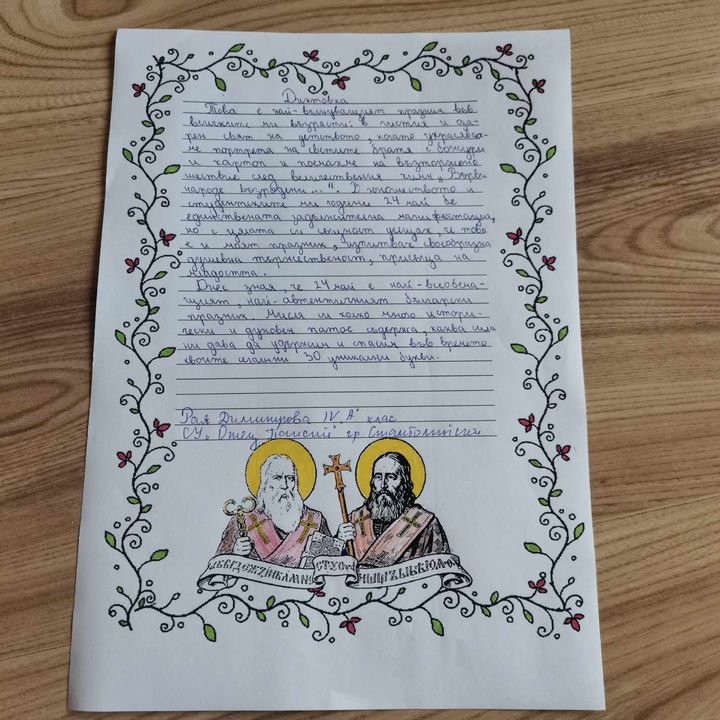 Диктовка
Това е най-вълнуващият празник във
всичките ми възрасти: в чистия и оза-
рен свят на детството, когато украсявах-
ме портрета на светите братя с божури
и картон и поемахме на възторжено
шествие след величествения химн „Върви
народе възродени...“. В юношеството и
студентските ми години 24 май бе
единствената задължителна манифестация,
но с цялата си същност усещах, че това
е и моят празник, изпитвах своеобразна
душевна тържественост, присъща на
младостта.
Днес зная, че 24 май е най-всеобема-
щият, най-автентичният български
празник. Мисля си колко много истори-
чески и духовен патос съдържа, каква сила
ни дава да удържим и спасим във времето
своите 30 уникални букви.
Рая Димитрова IV „А“ клас
СУ „Отец Паисий“ гр. Стамболийски